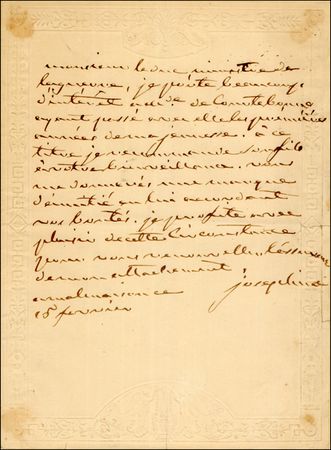 monsieur le duc ministre de
la guerre, je porte beaucoup
d'intérêt a de
ayant passé avec elle les premières
années de ma jeunesse. a ce
titre je recommande son fils
a votre bienveillance. vous
me donnerés une marque
d'amitié en lui accordant
vos bontés. je profite avec
plaisir de cette circonstance
pour vous renouveller l'assurance
de mon attachement
joséphine
a malmaison ce
15 fevrier